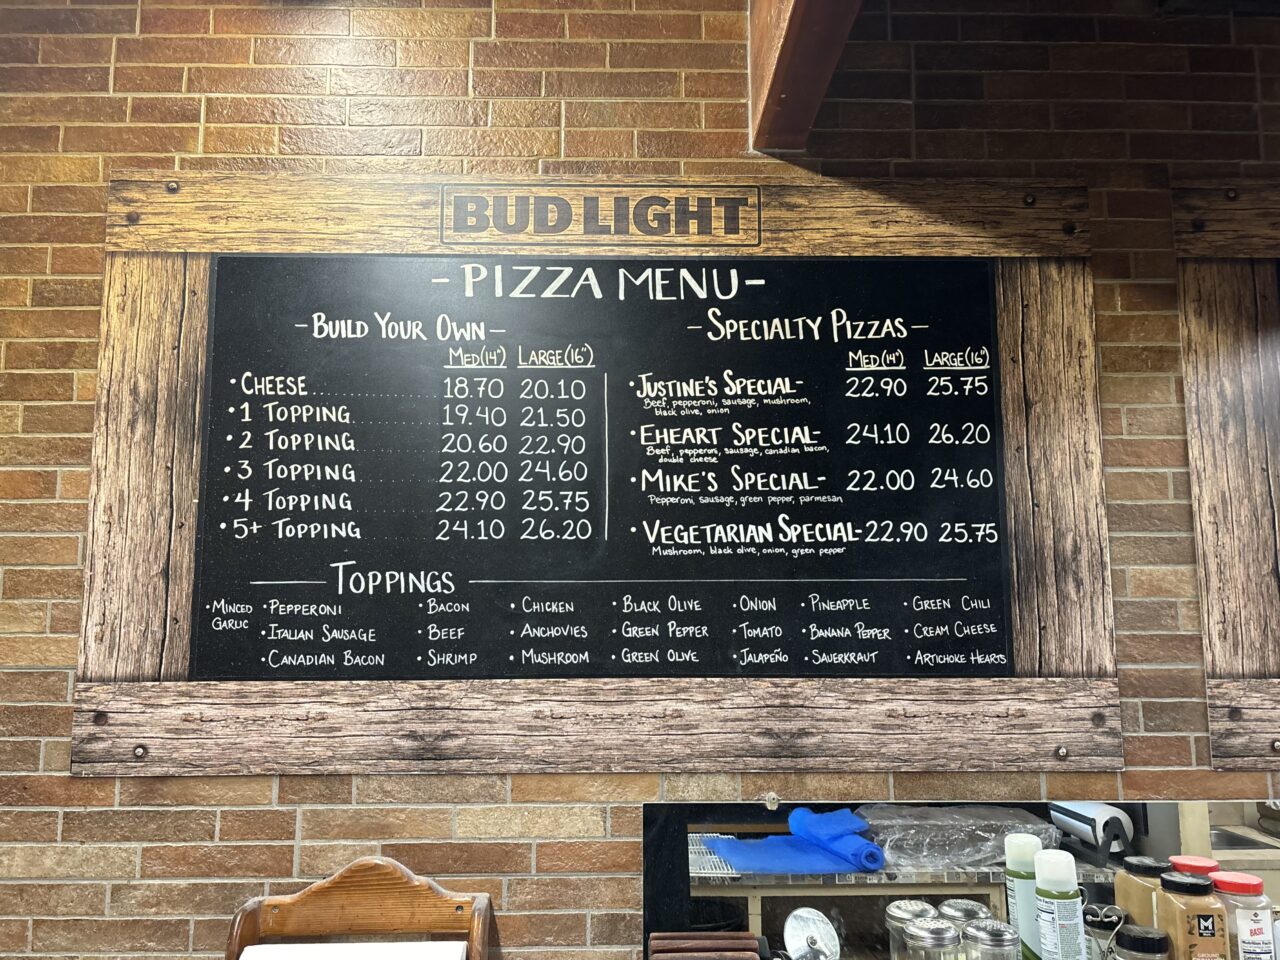 BUD LIGHT
- PIZZA MENU -
- BUILD YOUR OWN -
MED(14") LARGE(16")
• CHEESE 18.70 20.10
• 1 TOPPING 19.40 21.50
• 2 TOPPING 20.60 22.90
• 3 TOPPING 22.00 24.60
• 4 TOPPING 22.90 25.75
• 5+ TOPPING 24.10 26.20
- SPECIALTY PIZZAS -
MED(14") LARGE(16")
• JUSTINE'S SPECIAL- 22.90 25.75
Beef, pepperoni, sausage, mushroom,
black olive, onion
• EHEART SPECIAL- 24.10 26.20
Beef, pepperoni, sausage, canadian bacon,
double cheese
• MIKE'S SPECIAL- 22.00 24.60
Pepperoni, sausage, green pepper, parmesan
• VEGETARIAN SPECIAL- 22.90 25.75
Mushroom, black olive, onion, green pepper
TOPPINGS
• MINCED GARLIC
• PEPPERONI
• ITALIAN SAUSAGE
• CANADIAN BACON
• BACON
• BEEF
• SHRIMP
• CHICKEN
• ANCHOVIES
• MUSHROOM
• BLACK OLIVE
• GREEN PEPPER
• GREEN OLIVE
• ONION
• TOMATO
• JALAPEÑO
• PINEAPPLE
• BANANA PEPPER
• SAUERKRAUT
• GREEN CHILI
• CREAM CHEESE
• ARTICHOKE HEARTS
BASIL
Nutrition Facts
GROUND